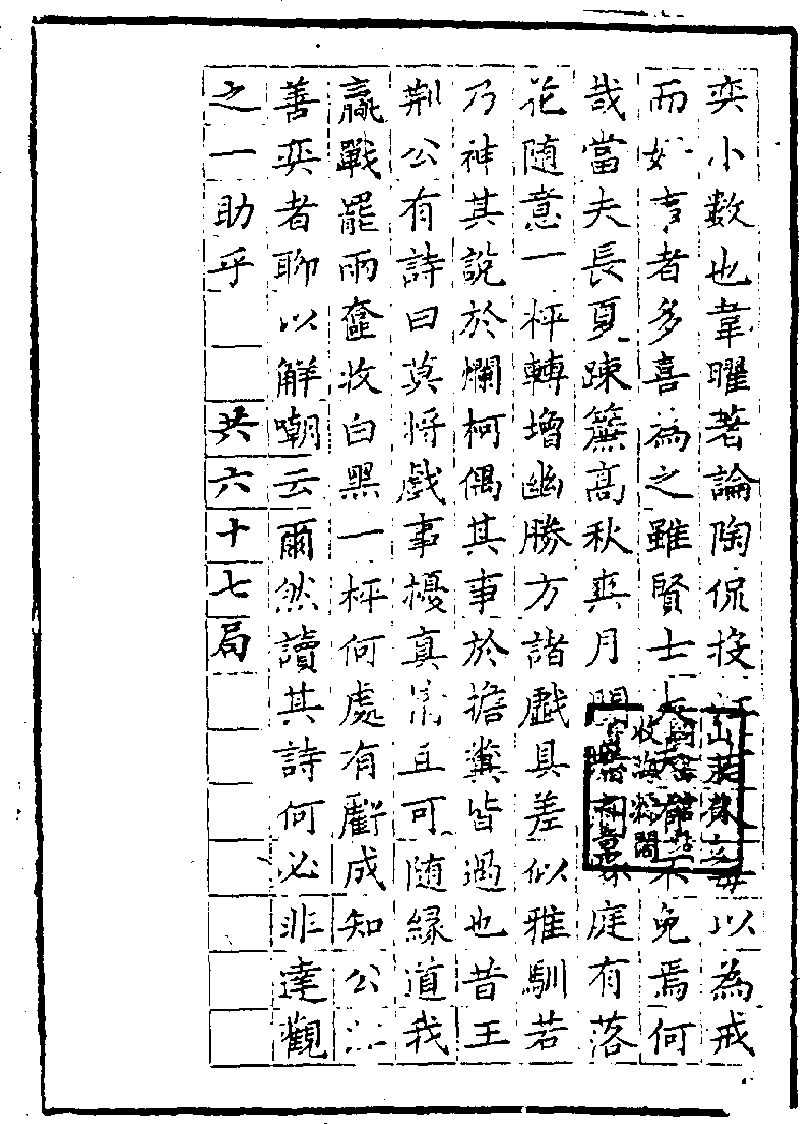 奕小数也韋曜著論陶侃投江非不毎以為戒
而好事者多喜為之雖賢士大夫不免焉何
哉當夫長夏踈簾高秋爽月閒庭有落
花随意一枰轉增幽勝方諸戲具差似雅馴若
乃神其說於爛柯偶其事於擔糞皆過也昔王
荆公有詩曰莫将戲事擾真情且可随緣道我
贏戰罷兩奩收白黑一枰何處有虧成知公亦
善奕者聊以解嘲云爾然讀其詩何必非達觀
之一助乎
共六十七局